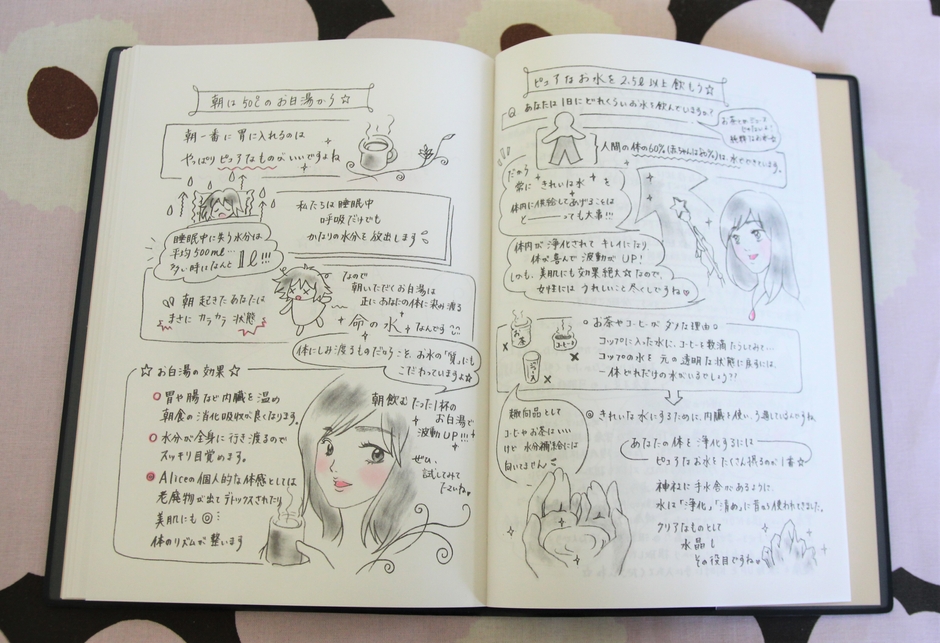 朝は50℃のお白湯から☆
朝一番に胃に入れるのは
やっぱりピュアなものがいいですよね
私たちは睡眠中
呼吸だけでも
かなりの水分を放出します
睡眠中に失う水分は
平均500ml…
多い時はなんと1ℓ!!!
朝起きたあなたは
まさにカラカラ状態
なので
朝いただくお白湯は
正にあなたの体に染み渡る
命の水なんです
体にしみ渡るものだからこそ、お水の「質」にも
こだわっていますよ☆
☆お白湯の効果☆
胃や腸など内臓を温め
朝食の消化吸収が良くなります。
水分が全身に行き渡るので
スッキリ目覚めます。
Aliceの個人的な体感としては
老廃物が出てデトックスされたり
美肌にも◎
体のリズムが整います
朝飲むたった1杯の
お白湯で
波動UP!!!
ぜひ、
試してみて
くださいね。
ピュアなお水を2.5ℓ以上飲もう☆
Q あなたは1日にどれくらいのお水を飲んでいますか?
お茶やジュース
じゃないよ!
純粋なお水☆
人間の体の60%(赤ちゃんは80%)は水でできています。
だから
常にきれいな水を
体内に供給してあげることは
と――っても大事!!!
体内が浄化されてキレイになり
体が喜んで波動がUP!
しかも、美肌にも効果絶大☆なので、
女性にはうれしいこと尽くしですね♡
お茶やコーヒーがダメな理由
コップに入った水に、コーヒーを数滴たらしてみて…
コップの水を元の透明な状態に戻すには
一体どれだけの水がいるでしょう??
お茶
コーヒー
ジュース
嗜好品として
コーヒーやお茶はいい
けど水分補給には
向いてません
◎きれいな水にするために、内臓を使い、ろ過しているんですね。
あなたの体を浄化するには
ピュアなお水をたくさん摂るのが1番☆
神社に手水舎があるように、
水は「浄化」「清め」に昔から使われてきました。
クリアなものとして
水晶も
その役目ですね